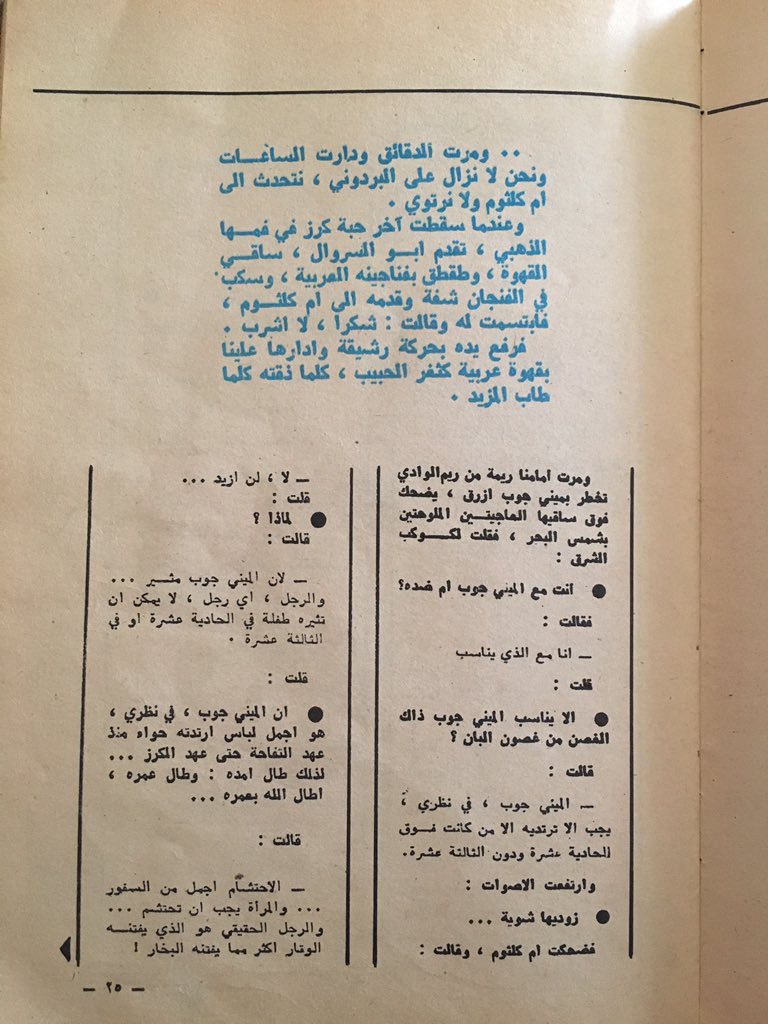 .. ومرت الدقائق ودارت الساعات
ونحن لا نزال على البردوني ، نتحدث الى
ام كلثوم ولا نرتوي .
وعندما سقطت آخر حبة كرز في فمها
الذهبي ، تقدم ابو السروال ، ساقي
القهوة ، وطقطق بفناجينه العربية ، وسكب
في الفنجان شفة وقدمه الى ام كلثوم ،
فابتسمت له وقالت : شكرا ، لا اشرب .
فرفع يده بحركة رشيقة وادارها علينا
بقهوة عربية كثغر الحبيب ، كلما ذقته كلما
طاب المزيد .
ومرت امامنا ريمة من ريم الوادي
تخطر بميني جوب ازرق ، يضحك
فوق ساقيها العاجيتين الملوحتين
بشمس البحر ، فقلت لكوكب
الشرق :
● انت مع الميني جوب ام ضده؟
فقالت :
— انا مع الذي يناسب
قلت :
● الا يناسب الميني جوب ذاك
الغصن من غصون البان ؟
قالت :
— الميني جوب ، في نظري ،
يجب الا ترتديه الا من كانت فوق
الحادية عشرة ودون الثالثة عشرة.
وارتفعت الاصوات :
● زوديها شوية ...
فضحكت ام كلثوم ، وقالت :
— لا ، لن ازيد ...
قلت :
● لماذا ؟
قالت :
— لان الميني جوب مثير ...
والرجل ، اي رجل ، لا يمكن ان
تثيره طفلة في الحادية عشرة او في
الثالثة عشرة .
قلت :
● ان الميني جوب ، في نظري ،
هو اجمل لباس ارتدته حواء منذ
عهد التفاحة حتى عهد الكرز ...
لذلك طال امده : وطال عمره ،
اطال الله بعمره ...
قالت :
— الاحتشام اجمل من السفور
... والمرأة يجب ان تحتشم ...
والرجل الحقيقي هو الذي يفتنه
الوقار اكثر مما يفتنه البخار !
— ٢٥ —